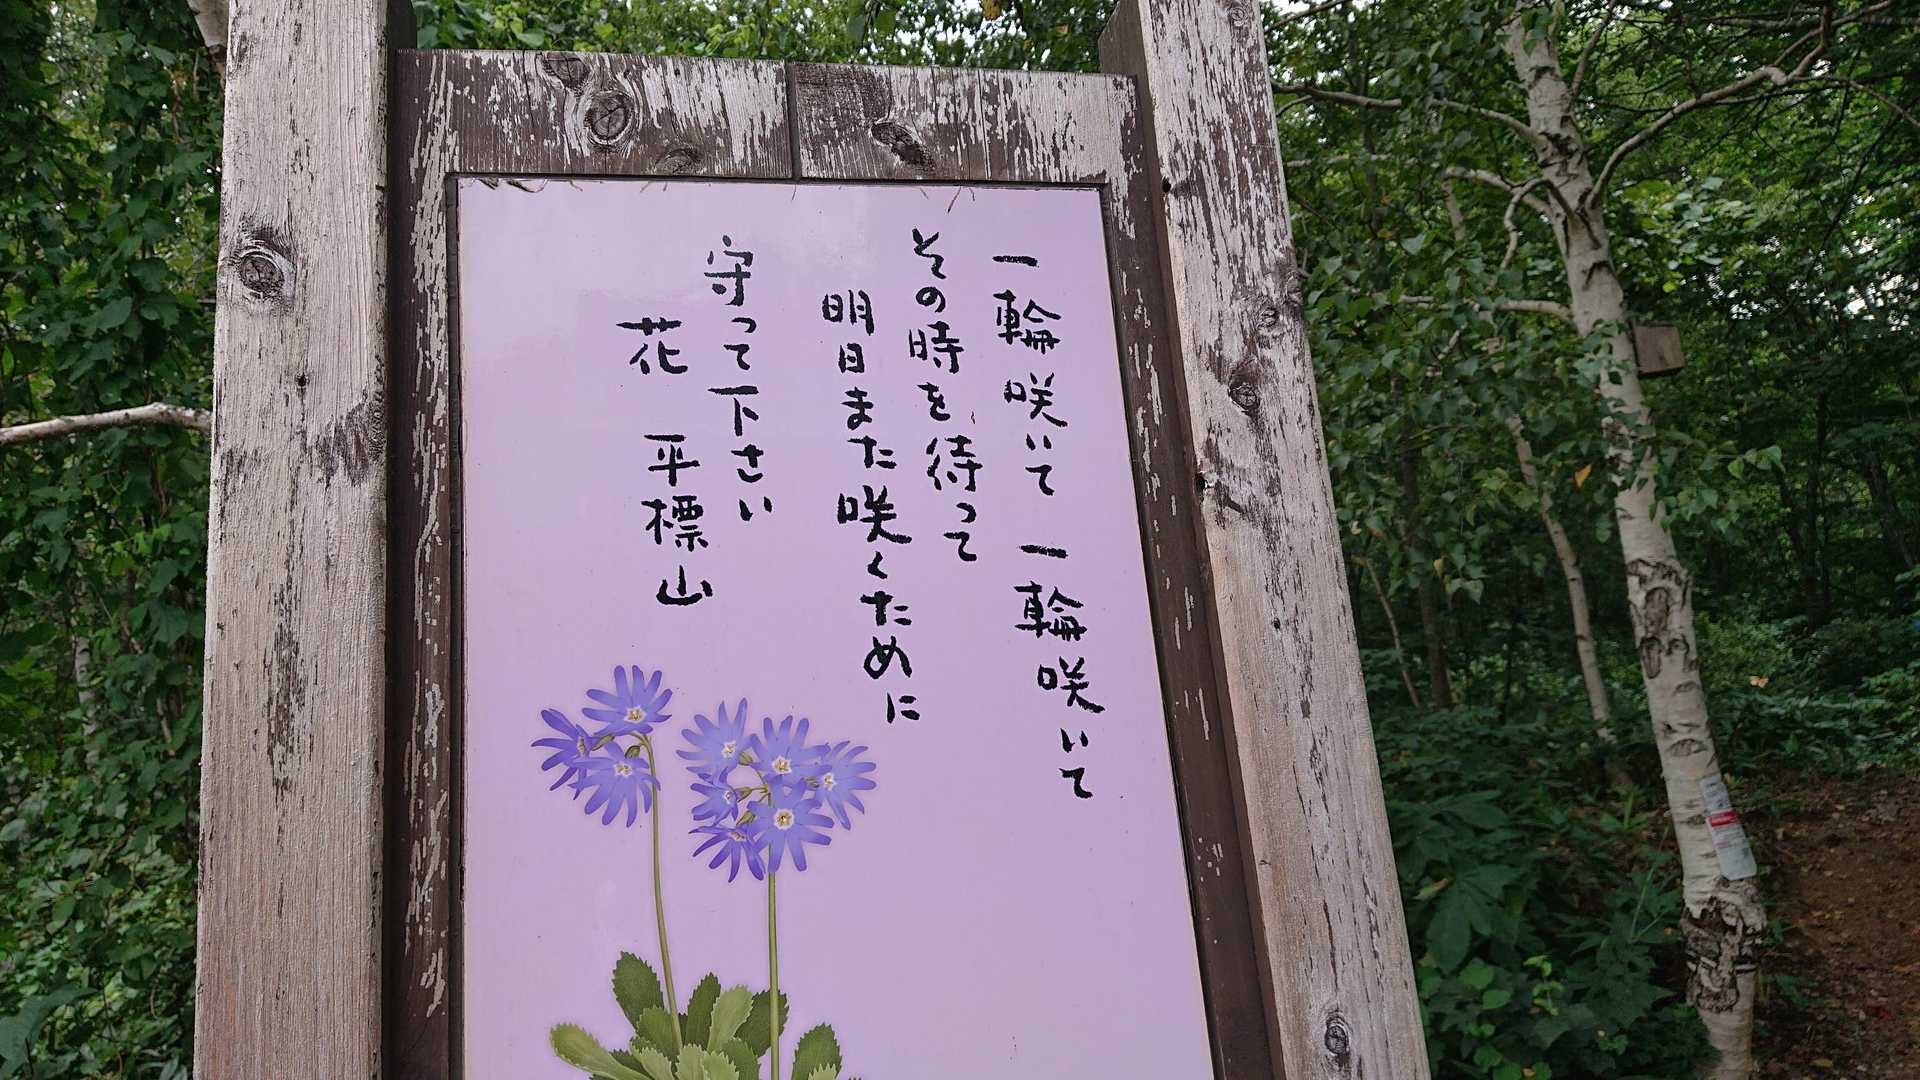 一輪咲いて 一輪咲いて
その時を待って
明日また咲くために
守って下さい
花 平標山